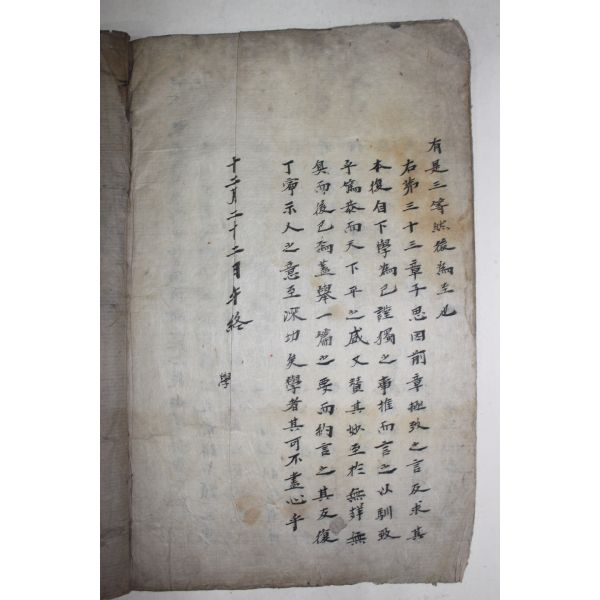 有是三等然後爲至也
右第三十三章子思因前章極致之言反求其
本復自下學爲己謹獨之事推而言之以馴致
乎篤恭而天下平之盛又贊其妙至於無聲無
臭而後已焉蓋擧一篇之要而約言之其反復
丁寧示人之意至深切矣學者其可不盡心乎
十二月二十二日午終
學